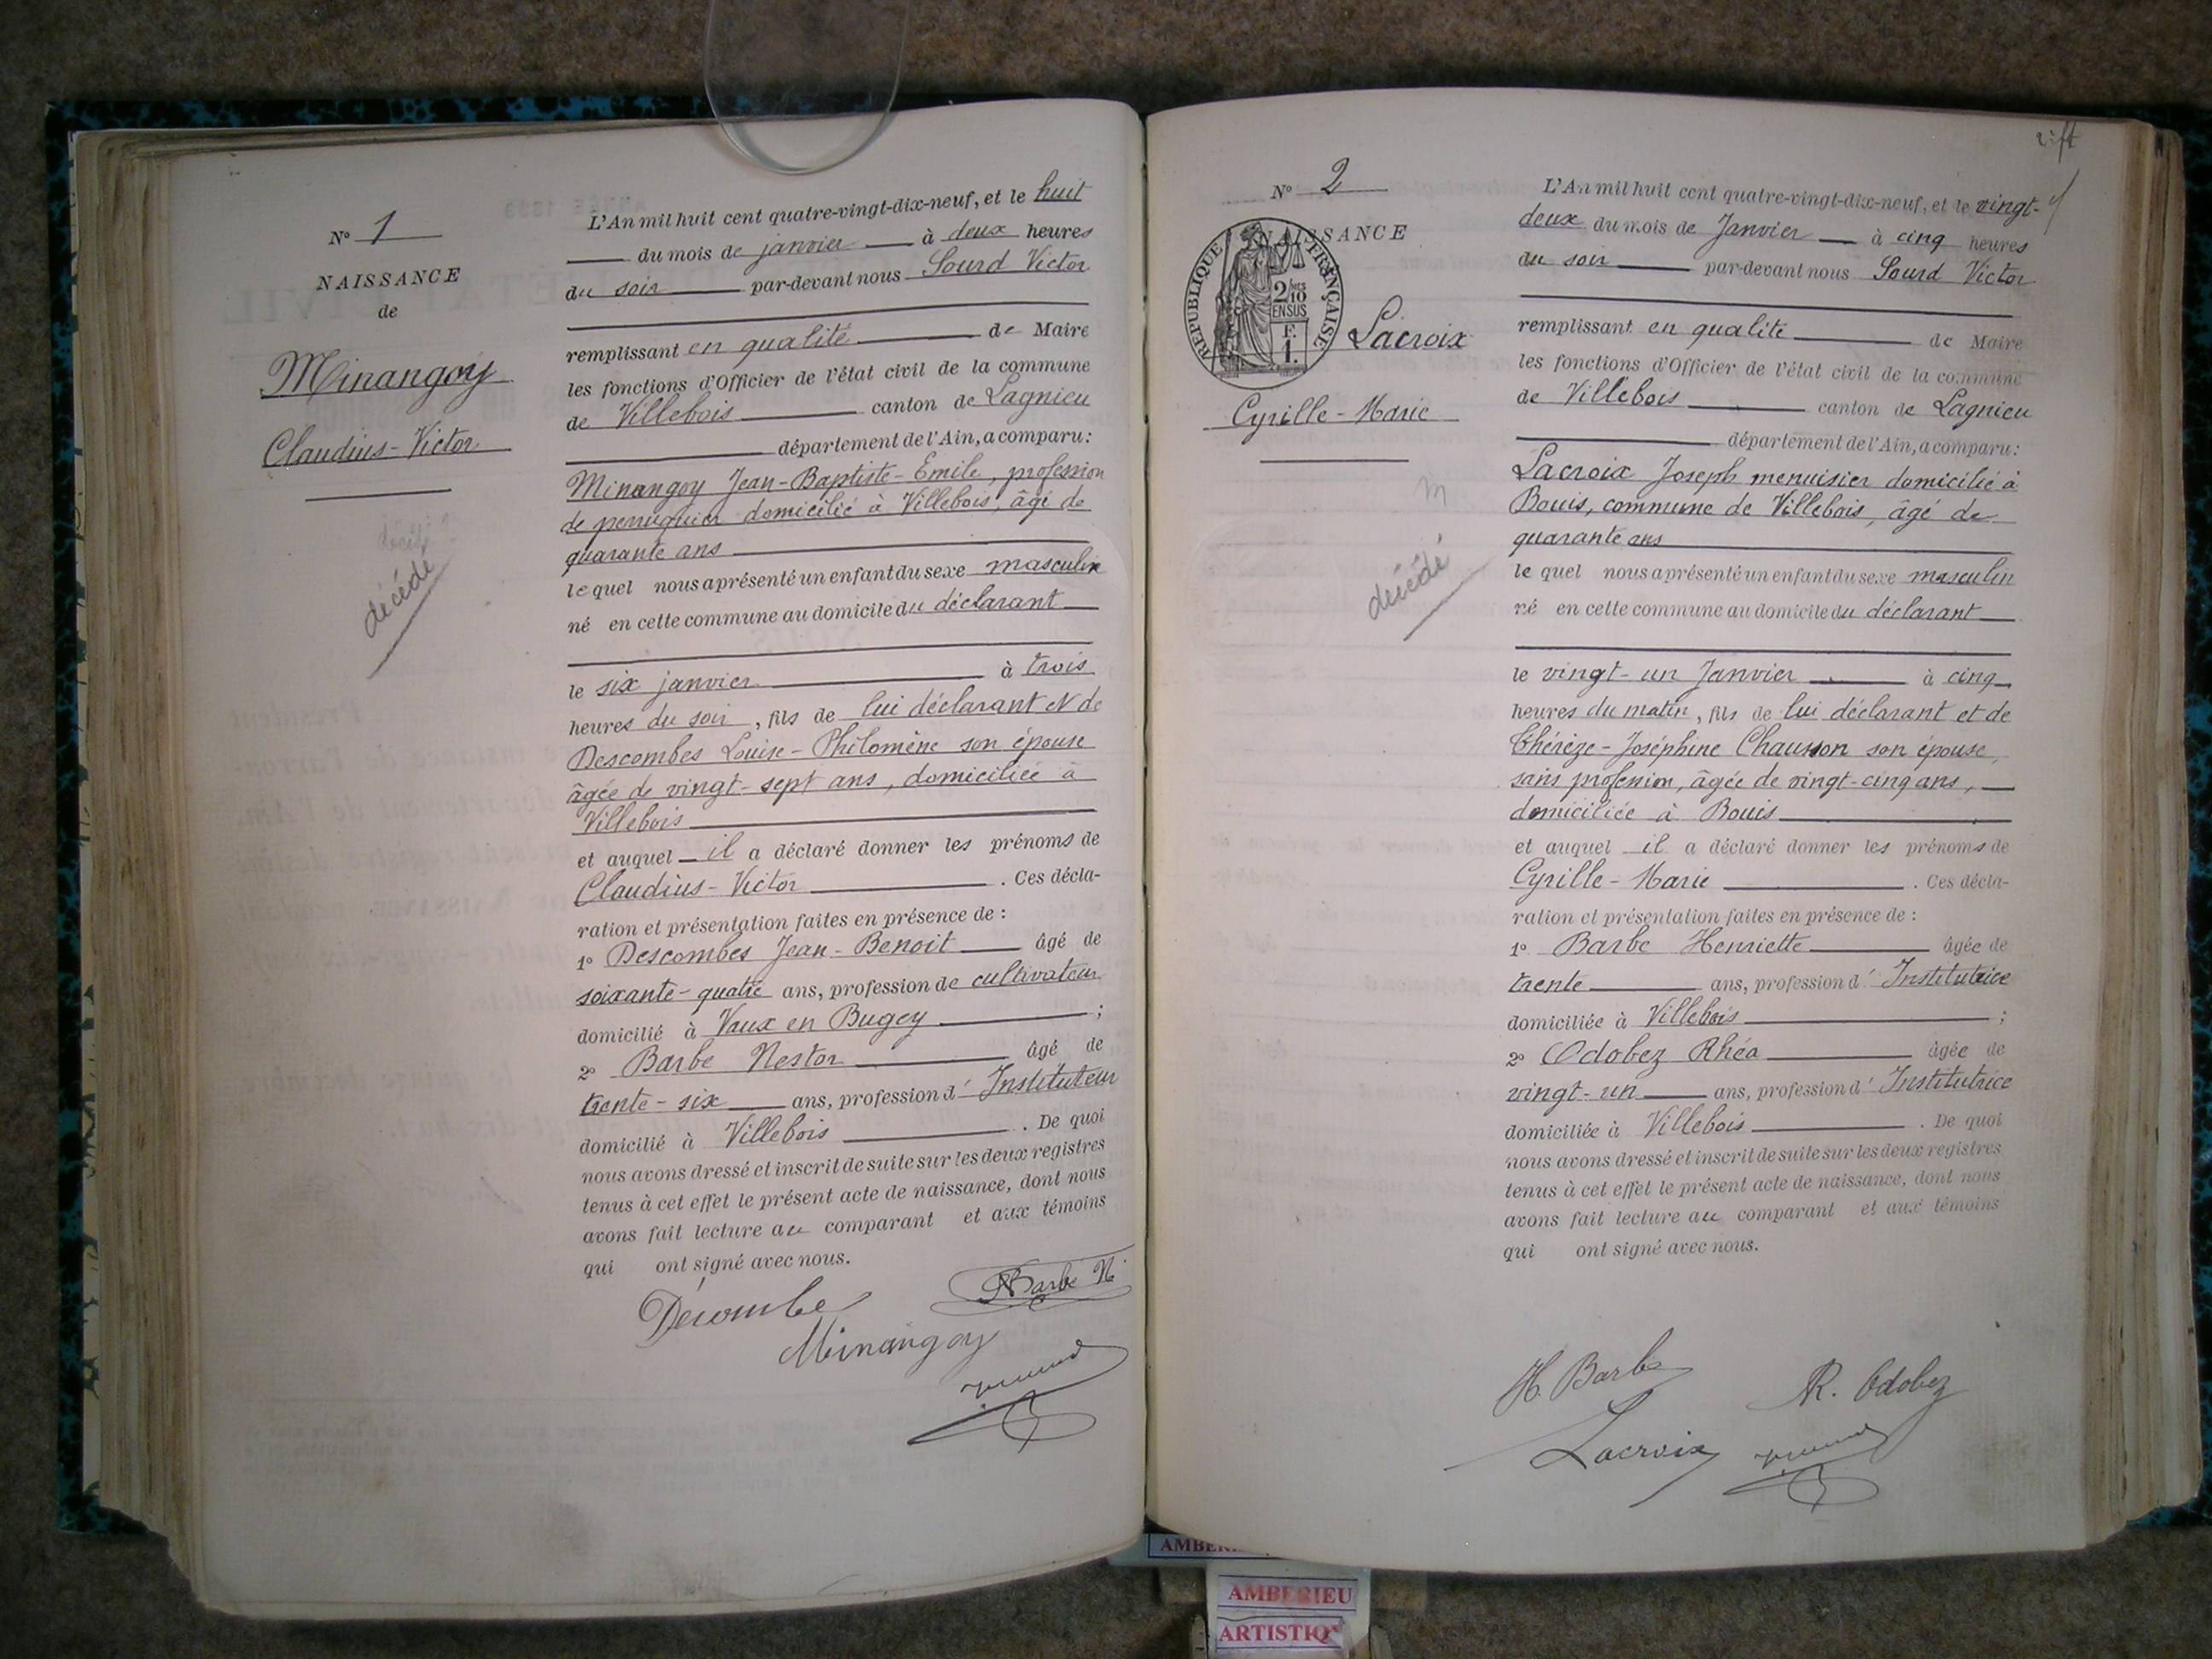 N° 1
NAISSANCE
de
Minangoy
Claudius-Victor
décédé
décédé
L'An mil huit cent quatre-vingt-dix-neuf, et le huit
du mois de janvier à deux heures
du soir par-devant nous Sourd Victor
remplissant en qualité de Maire
les fonctions d'Officier de l'état civil de la commune
de Villebois canton de Lagnieu
département de l'Ain, a comparu :
Minangoy Jean-Baptiste-Emile, profession
de perruquier domicilié à Villebois, âgé de
quarante ans
le quel nous a présenté un enfant du sexe masculin
né en cette commune au domicile du déclarant
le six janvier à trois
heures du soir, fils de lui déclarant et de
Descombes Louise-Philomène son épouse
âgée de vingt-sept ans, domiciliée à
Villebois
et auquel il a déclaré donner les prénoms de
Claudius-Victor . Ces décla-
ration et présentation faites en présence de :
1° Descombes Jean-Benoit âgé de
soixante-quatre ans, profession de cultivateur
domicilié à Vaux en Bugey ;
2° Barbe Nestor âgé de
trente-six ans, profession d' Instituteur
domicilié à Villebois . De quoi
nous avons dressé et inscrit de suite sur les deux registres
tenus à cet effet le présent acte de naissance, dont nous
avons fait lecture au comparant et aux témoins
qui ont signé avec nous.
Décombe Barbe N
Minangoy
N° 2
NAISSANCE
REPUBLIQUE FRANÇAISE
2/10
EN SUS
F.
1.
Lacroix
Cyrille-Marie
décédé
L'An mil huit cent quatre-vingt-dix-neuf, et le vingt-
deux du mois de Janvier à cinq heures
du soir par-devant nous Sourd Victor
remplissant en qualité de Maire
les fonctions d'Officier de l'état civil de la commune
de Villebois canton de Lagnieu
département de l'Ain, a comparu :
Lacroix Joseph menuisier domicilié à
Bouis, commune de Villebois, âgé de
quarante ans
le quel nous a présenté un enfant du sexe masculin
né en cette commune au domicile du déclarant
le vingt-un Janvier à cinq
heures du matin, fils de lui déclarant et de
Thérèze-Joséphine Chausson son épouse,
sans profession, âgée de vingt-cinq ans,
domiciliée à Bouis
et auquel il a déclaré donner les prénoms de
Cyrille-Marie . Ces décla-
ration et présentation faites en présence de :
1° Barbe Henriette âgée de
trente ans, profession d' Institutrice
domiciliée à Villebois ;
2° Odobez Rhéa âgée de
vingt-un ans, profession d' Institutrice
domiciliée à Villebois . De quoi
nous avons dressé et inscrit de suite sur les deux registres
tenus à cet effet le présent acte de naissance, dont nous
avons fait lecture au comparant et aux témoins
qui ont signé avec nous.
H. Barbe R. Odobez
Lacroix
AMBERIEU
ARTISTIQ